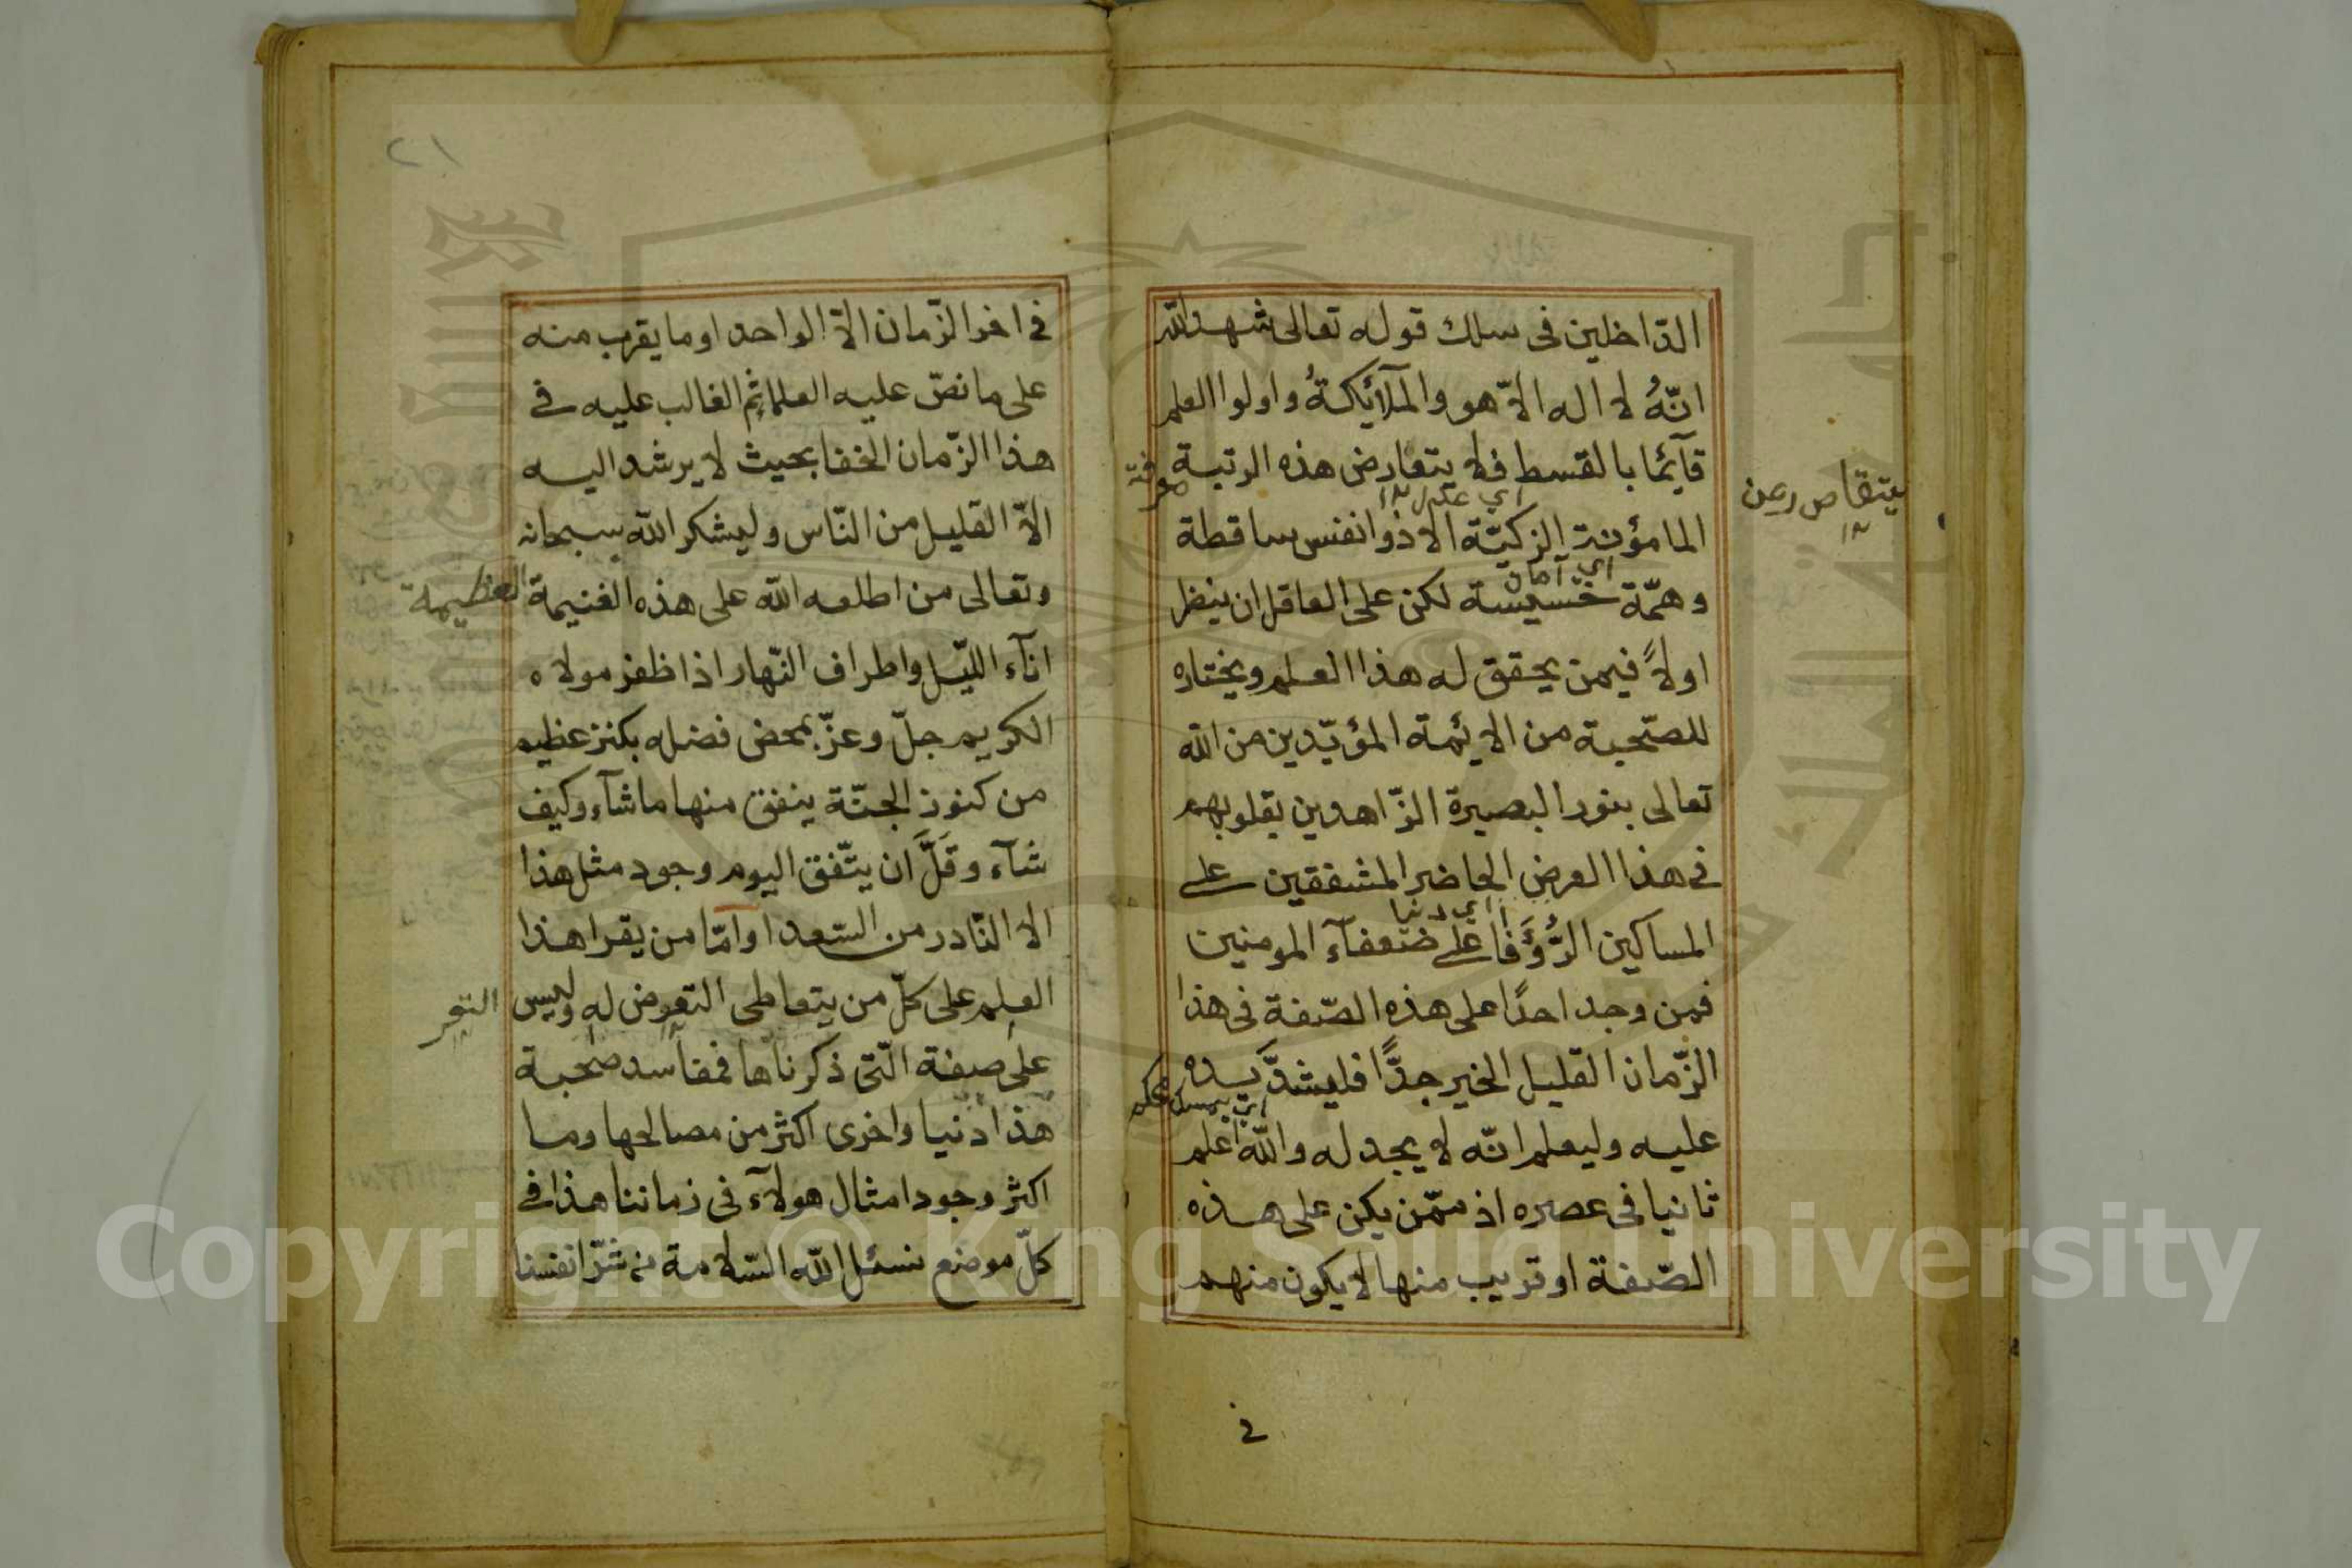 الدّاخلين فى سلك قوله تعالى شهد الله
انّهُ لا اله الاّ هو والملآئكةُ واولوا العلم
قآئما بالقسط فلا يتعارض هذه الرتبة
معرفة
يتقاصر عن
اي عكس
المامؤنة الزكيّة الا ذوا نفس ساقطة
اي آمان
وهمّة خسيسة لكن على العاقل ان ينظر
اولاً فيمن يحقق له هذا العلم ويختاره
للصّحبة من الايمّة المؤيّدين من الله
تعالى بنور البصيرة الزّاهدين بقلوبهم
فى هذا العرض الحاضر المشفقين على
اي دنيا
المساكين الرُّؤَفا على ضعفآء المومنين
فمن وجد احدًا على هذه الصّفة فى هذا
الزّمان القليل الخير جدًّا فليشدَّ يده
عليه وليعلم انّه لا يجد له والله اعلم
ثانيا فى عصره اذ ممّن يكن على هذه
الصّفة او قريب منها لا يكون منهم
فى
٢١
فى اخر الزّمان الاّ الواحد او ما يقرب منه
على ما نصّ عليه العلما ثم الغالب عليه فى
هذا الزّمان الخفا بحيث لا يرشد اليه
الاّ القليل من النّاس وليشكر الله سبحانه
وتعالى من اطلعه الله على هذه الغنيمة العظيمة
انآء اللّيل واطراف النّهار اذا ظفز مولاه
الكريم جلّ وعزّ بمحض فضله بكنز عظيم
من كنوز الجنّة ينفق منها ما شآء وكيف
شآء وقَلَّ ان يتّفق اليوم وجود مثل هذا
الا النّادر من السّعدا وامّا من يقرا هذا
العلم على كلّ من يتعاطى التعرض له وليس
على صفة الّتى ذكرناها فمفاسد صحبة
هذا دنيا واخرى اكثر من مصالحها وما
اكثر وجود امثال هولآء فى زماننا هذا فى
كلّ موضع نسئل الله السّلامة من شرّ انفسنا
Copyright © King Saud University